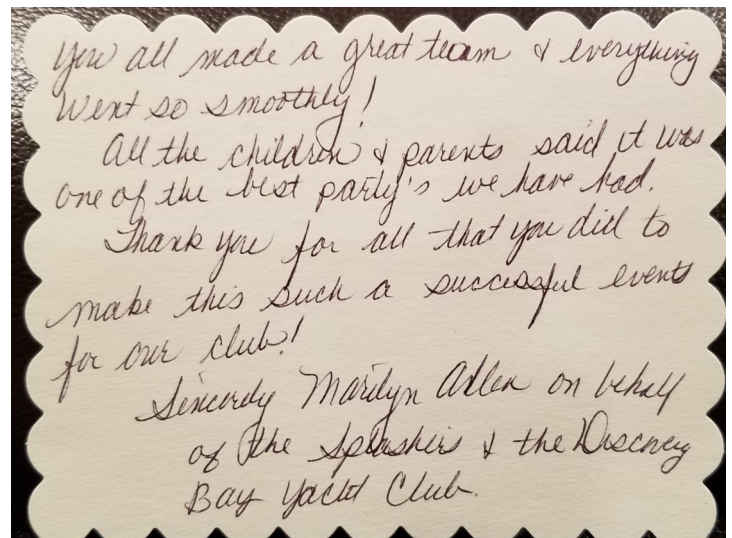 You all made a great team & everything
Went so smoothly!
All the children & parents said it was
one of the best party's we have had.
Thank you for all that you did to
make this such a successful events
for our club!
Sincerdy Marilyn Allen on behalf
of the Splashers & the Discovery
Bay Yacht Club.